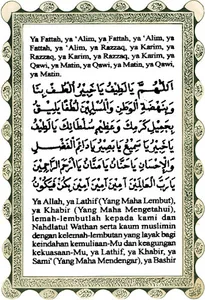 Ya Fattah, ya 'Alim, ya Fattah, ya 'Alim, ya
Fattah, ya 'Alim, ya Razzaq, ya Karim, ya
Razzaq, ya Karim, ya Razzaq, ya Karim, ya
Qawi, ya Matin, ya Qawi, ya Matin, ya Qawi,
ya Matin.
اَللّٰهُمَّ يَا لَطِيْفُ يَا خَبِيْرُ اُلْطُفْ بِنَا
وَبِنَهْضَةِ الْوَطَنِ وَالْمُسْلِمِيْنَ لُطْفًا يَلِيْقُ
بِجَمِيْلِ كَرَمِكَ وَعَظِيْمِ سُلْطَانِكَ يَا لَطِيْفُ
يَا خَبِيْرُ يَا سَمِيْعُ يَا بَصِيْرُ يَا دَائِمَ الْفَضْلِ
وَالْإِحْسَانِ يَا حَنَّانُ يَا مَنَّانُ يَا أَرْحَمَ الرَّاحِمِيْنَ
يَا رَبَّ الْعَالَمِيْنَ آمِيْنَ يَا مَنْ يَقُوْلُ كُنْ فَيَكُوْنُ
Ya Allah, ya Lathif (Yang Maha Lembut),
ya Khabir (Yang Maha Mengetahui),
lemah-lembutlah kepada kami dan
Nahdlatul Wathan serta kaum muslimin
dengan kelemah-lembutan yang layak bagi
keindahan kemuliaan-Mu dan keagungan
kekuasaan-Mu, ya Lathif, ya Khabir, ya
Sami' (Yang Maha Mendengar), ya Bashir